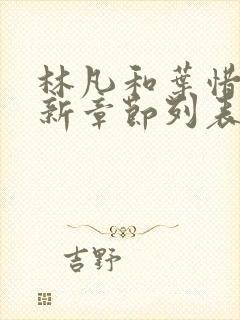 林凡和葉惜
新章節列表
吉野